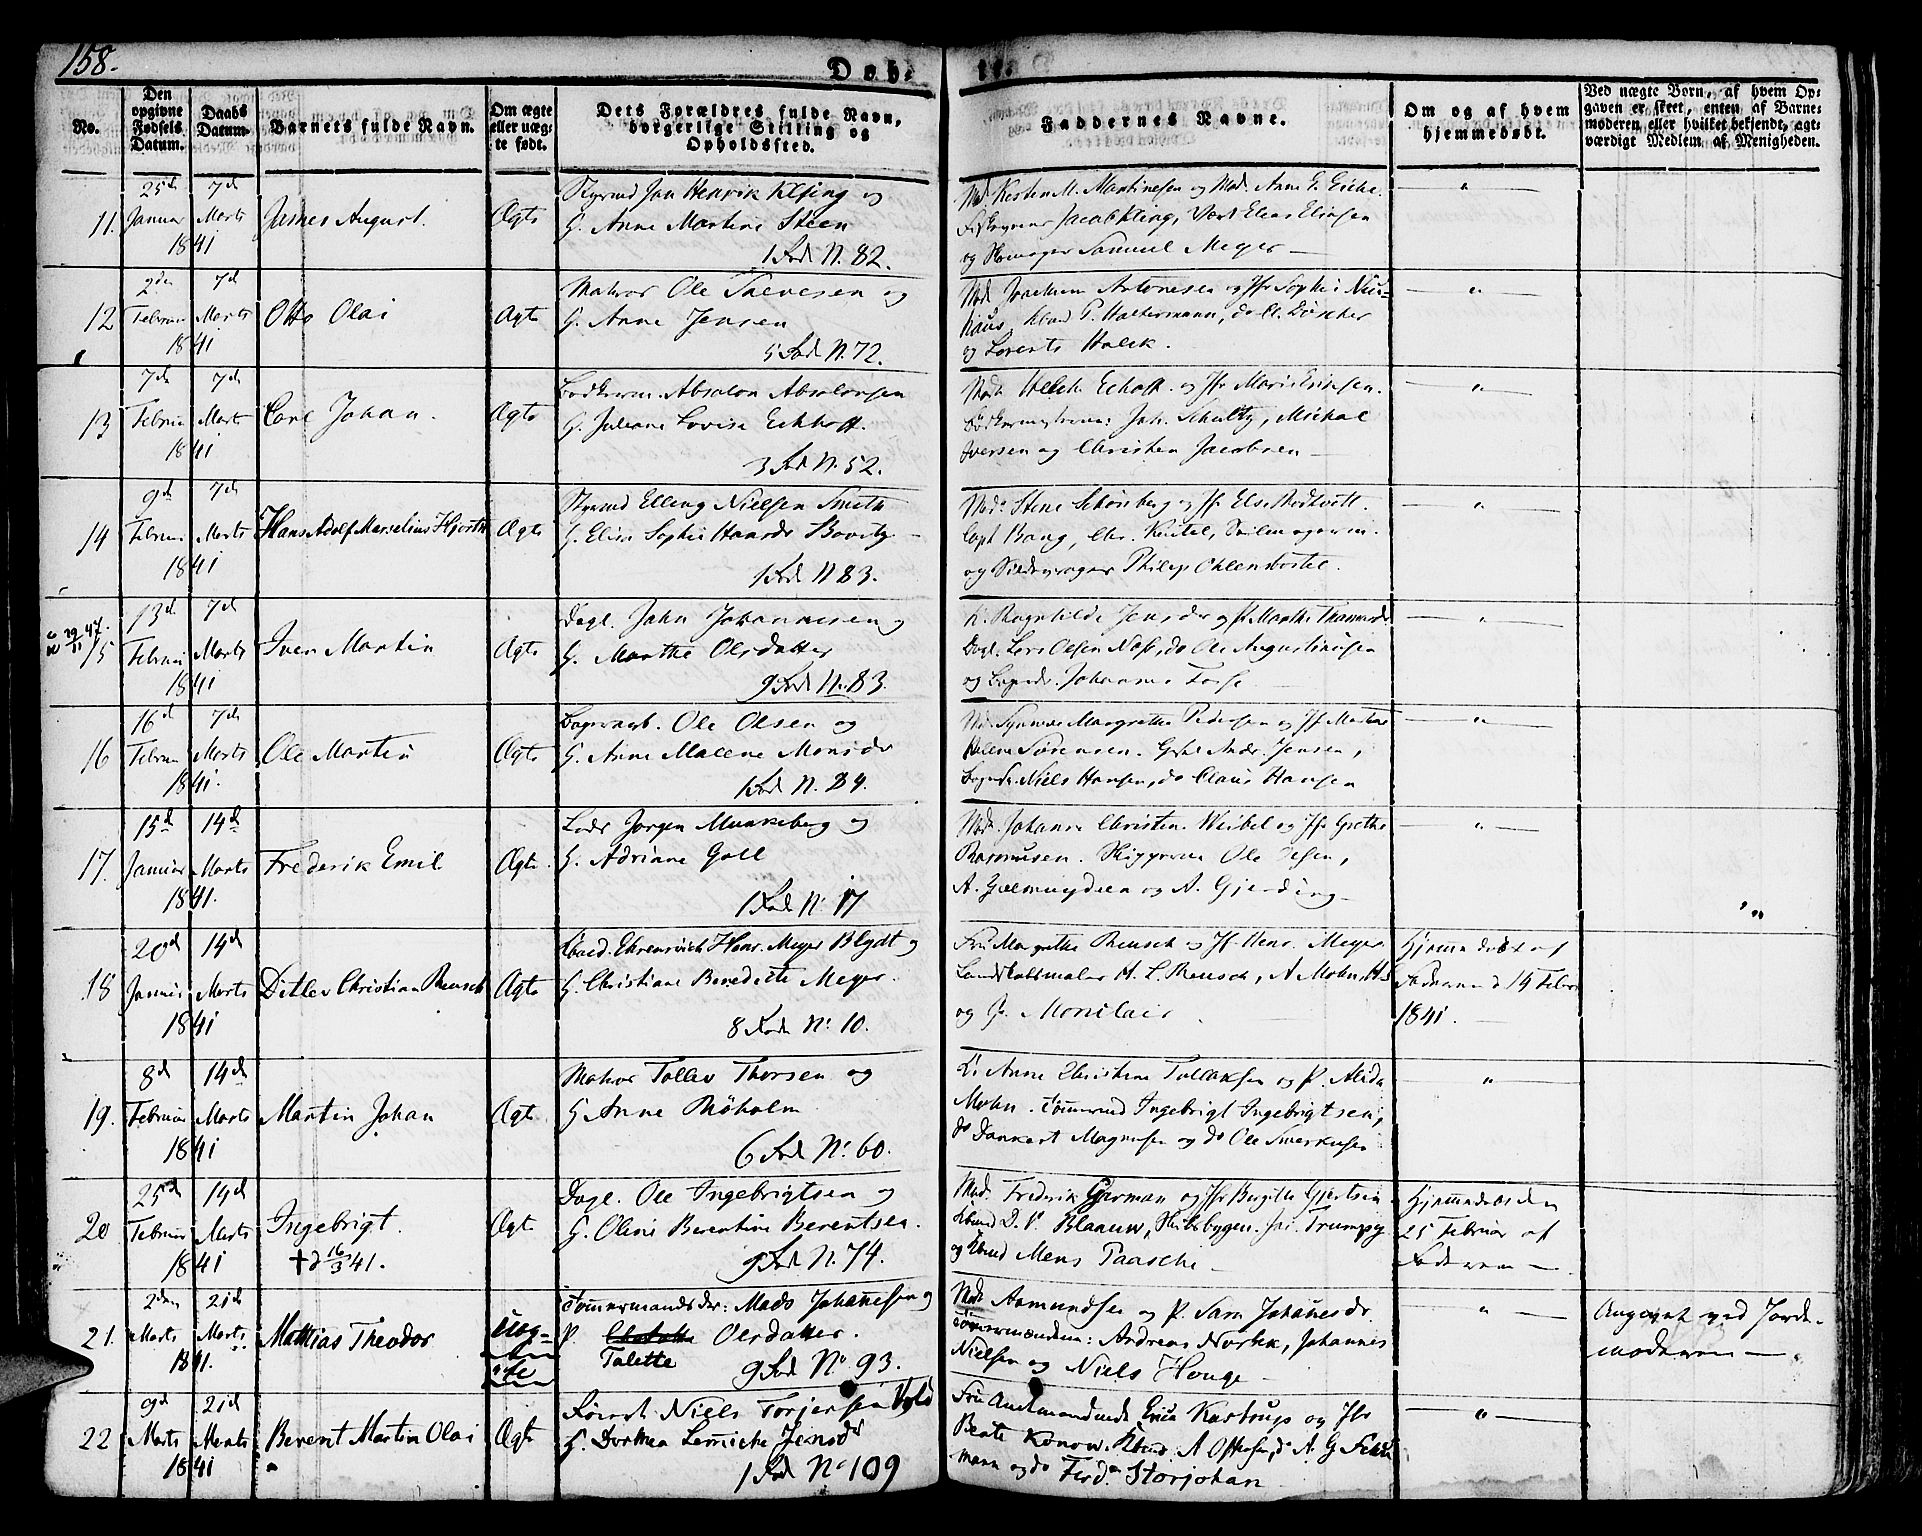 158.
Døbte.
No.
Den opgivne Fødsels Datum.
Daabs Datum.
Barnets fulde Navn.
Om ægte eller uægte født.
Dets Forældres fulde Navn, borgerlige Stilling og Opholdssted.
Faddernes Navne.
Om og af hvem hjemmedøbt.
Ved uægte Børn, af hvem Opgaven er skeet, enten af Barnemoderen eller hvilket bekjendt, agtværdigt Medlem af Menigheden.
11.
25de Januar 1841
7de Marts
James August.
Ægte
Styrmd Jan Henrik Klping og
H. Anne Martine Steen
1 Rode N. 82.
Md. Kirsten M. Martinesen og Md. Anne
Jacob Kling, Vært Elias Elingsen
og Samuel Meyer
12
2den Februar 1841
7de Marts
Otto Olai
Ægte
Matros Ole Salvesen og
H. Anne Jensen
5 Rode N. 72.
Md. Joachim Antonesen og Jfr Sophie Niu=
haus, Kbmd P. Haltermann, do Cl. Döscher
og Lorents Holck.
13
7de Februar 1841
7de Marts
Carl Johan.
Ægte
Bødkersv. Absalon Absalonsen
H. Juliane Lovise Eckhoff.
3 Rode N. 52.
Md. Eckhoff. og Jfr Maria Erichsen.
Joh. Schultz, Michal
Iversen og Christen Jacobsen
14
9de Februar 1841
7de Marts
Hans Adolf Marselius Hjorth
Ægte
Styrmd Elling Nielsen Smith
H. Elisa Sophie Haarde Bowitz
1 Rode N 83.
Md. Stene Schönberg og Jfr Else Rodtvett.
Capt Bang, Chr. Knitel,
og Philip Ohlenbostel.
29/11 47.
15
13de Februar 1841
7de Marts
Iver Martin
Ægte
Dagl. John Johannesen og
H. Marthe Olsdatter
9 Rode N. 83.
K. Ragnhilde Jensdr og P. Marthe
Dagl. Lars Olsen Næss, do Ole Augustinusen
og Johannes
16
16de Februar 1841
7de Marts
Ole Martin
Ægte
Ole Olsen og
H. Anne Malene Monsdr
1 Rode N. 84.
Margrethe Pedersen og Jfr Martine
Helene Sørensen. Andr. Jensen,
Niels Hansen, do Claus Hansen
17.
15de Januar 1841.
14de Marts
Frederik Emil
Ægte.
Lods Jørgen Munkeberg og
H. Adriane Goll
1 Rode N. 17
Md. Johanne Christen. Weibel og Jfr Grethe
Rasmussen. Skipperne Ole
A. og A. Gjerding
18
20de Januar 1841
14de Marts
Ditlev Christian Reusch
Ægte
Ehrenreich Henr. Meyer Blydt og
H. Christiane Benedicte Meyer.
8 Rode N. 10.
Fru Margrethe Reusch og Jfr Henr. Meyer
Landskabsmaler H. L. Reusch, A Mohn,
og P. Monclair.
Hjemmedøbt af
Fadderne d 14 Febr
1841.
19.
8de Februar 1841
14de Marts
Martin Johan
Ægte
Matros Tollev Thorsen og
H Anne Røholm
6 Rode N. 60.
K. Anne Christine Tollaksen og P. Alida
Mohn. Tømmermd Ingebrigt Ingebrigtsen,
do Dankert Magnusen og do Ole
20
25de Februar 1841
14de Marts
Ingebrigt.
† d 16/3 41.
Ægte
Dagl. Ole Ingebrigtsen og
H. Oline Berentine Berentsen.
9 Rode N. 74.
Md. Frederik German og Jfr Birgitte Gjertsen
Kbmd D. V. Blaauw, Skibsbygm. Trumpy
og Kbmd Mens Paasche
Hjemmedøbt den
25 Februar af
Fadderen
21.
2den Marts 1841.
21de Marts
Matthias Theodor
Uæg=
te
Tømmermandsdr: Mads Johannesen og
P. Olsdatter.
Talette
9 Rode No 93.
Md. Aamundsen og P. Sara Johannesdr
Tømmermændene: Andreas Norbek, Johannes
Nielsen og Niels Houge
Angivet ved Jorde=
moderen
22
9de Marts 1841
21de Marts
Berent Martin Olai
Ægte
Niels Torjersen Vold
H. Dorthea Lemiche Jensdr
1 Rode No 109
Fru Amtmandinde Kastrup og Jfr
Beate Konow. Kbmd: A. A. G. Feld
mann og do Ferd. Storjohan